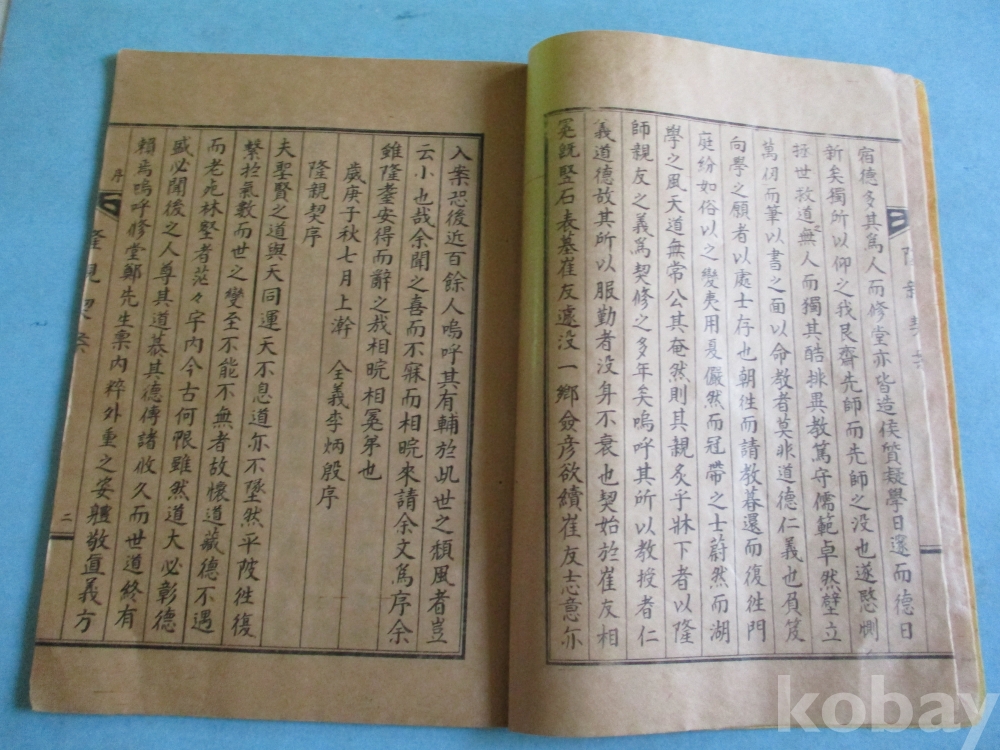 宿德多其爲人而修堂亦皆造侯質疑學日還而德日
新矣獨所以仰之我艮齋先師而先師之没也遂愍惻
拯世救道之無人而獨其酷排異教篤守儒範卓然壁立
萬仞而筆以書之面以命教者莫非道德仁義也負笈
向學之願者以處士存也朝徃而請教暮還而復徃門
庭紛如俗以之變夷用夏儼然而冠帶之士蔚然而湖
學之風天道無常公其奄然則其親炙乎牀下者以隆
師親友之義爲契修之多年矣嗚呼其所以教授者仁
義道德故其所以服勤者没身不衰也契始於崔友相
冕旣竪石表墓崔友遽没一鄉僉彦欲續崔友志意亦
入案恐後近百餘人嗚呼其有輔於此世之頹風者豈
云小也哉余聞之喜而不寐而相晥來請余文爲序余
雖隆耋安得而辭之哉相晥相冕弟也
歲庚子秋七月上澣 全義李炳殷序
隆親契序
夫聖賢之道與天同運天不息道亦不墜然平陂徃復
繫於氣數而世之變至不能不無者故懷道藏德不遇
而老死林壑者茫々宇内今古何限雖然道大必彰德
盛必聞後之人尊其道慕其德傳諸攸久而世道終有
賴焉嗚呼修堂鄭先生禀内粹外重之姿軆敬直義方
序
隆親契案
二
kobay